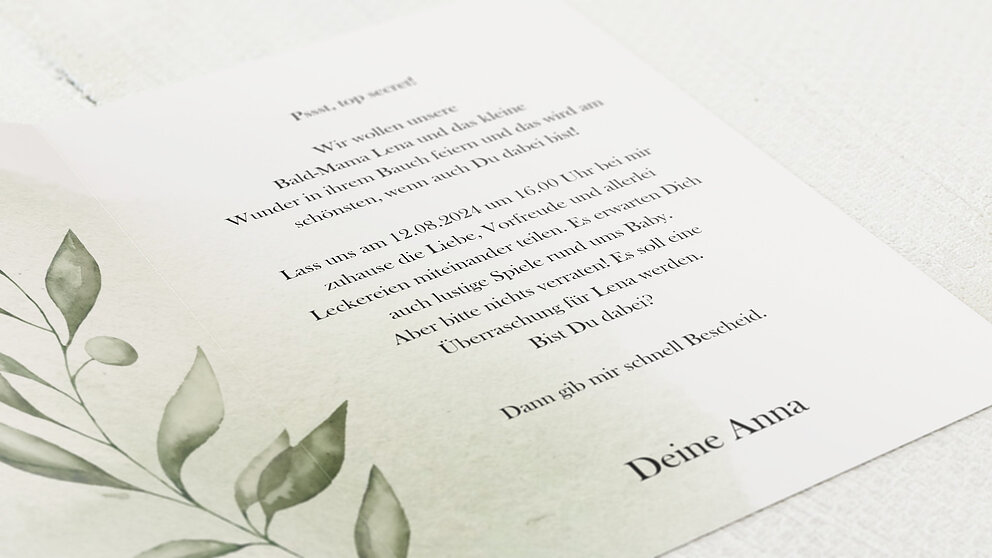 Pssst, top secret!
Wir wollen unsere
Bald-Mama Lena und das kleine
Wunder in ihrem Bauch feiern und das wird am
schönsten, wenn auch Du dabei bist!
Lass uns am 12.08.2024 um 16.00 Uhr bei mir
zuhause die Liebe, Vorfreude und allerlei
Leckereien miteinander teilen. Es erwarten Dich
auch lustige Spiele rund ums Baby.
Aber bitte nichts verraten! Es soll eine
Überraschung für Lena werden.
Bist Du dabei?
Dann gib mir schnell Bescheid.
Deine Anna